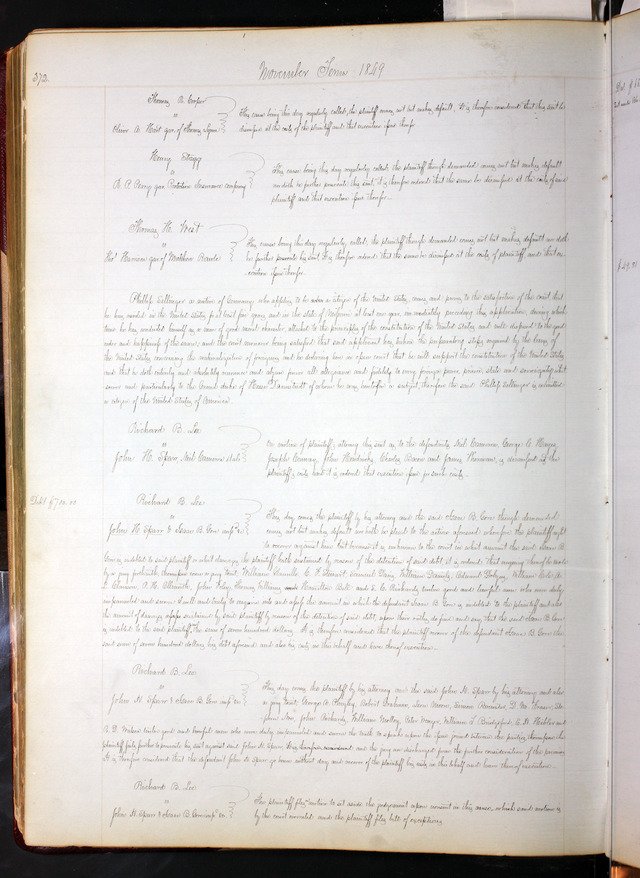 373.
November Term 1849
Thomas R. Cooper
"
Oliver A. Hart gar. of Thomas
This cause being this day regularly called, the plaintiff comes not but makes default. It is therefore considered that this suit be
dismissed at the costs of the plaintiff and that execution issue therefor
Henry Stagg
"
R. P. Perry gar. Protection Insurance company
This cause being this day regularly called, the plaintiff though demanded comes not but makes default
nor doth he further prosecute his suit, it is therefore ordered that the same be dismissed at the costs of said
plaintiff and that execution issue therefor.
Thomas H. West
"
Thos. gar of Matthew
This cause being this day regularly called, the plaintiff though demanded comes not but makes default nor doth
he further prosecute his suit It is therefore ordered that the same be dismissed at the costs of plaintiff, and that ex-
ecution issue therefor.
Phillip Sellinger a native of Germany who applies to be a citizen of the United States, comes and proves to the satisfaction of the court that
he has resided in the United States, at least five years, and in the state of Missouri at least one year, immediately preceding this application, during which
time he has conducted himself as a man of good moral character, attached to the principles of the constitution of the United States and well disposed to the good
order and happiness of the same; and the court moreover being satisfied that said applicant has taken the preparatory steps required by the laws of
the United States concerning the naturalization of foreigners and he declaring here in open court that he will support the constitution of the United States
and that he doth entirely and absolutely renounce and abjure forever all allegiance and fidelity to every foreign power, prince, state and sovereignty what
soever and particularly to the Grand duke of Hesse Darmstadt of whom he was heretofore a subject, therefore the said Phillip Sellinger is admitted
a citizen of the United States of America.
Richard B. Lee
"
John H. Sparr, Neil Cameron et als
On motion of plaintiffs attorney this suit as to the defendants, Neil Cameron, George C.
Joseph Conway, John Charles and James is dismissed at the
plaintiffs costs and it is ordered that execution issue for such costs.
Debt $700.00
Richard B. Lee
"
John H. Sparr & Isaac B. Gore impd. &c
This day comes the plaintiff by his attorney and the said Isaac B. Gore though demanded
comes not but makes default nor doth he plead to the action aforesaid wherefore the plaintiff ought
to recover against him but because it is unknown to the court in what amount the said Isaac B.
Gore is indebted to said plaintiff or what damages the plaintiff hath sustained by reason of the detention of said debt it is ordered that inquiry thereof be made
by a jury wherefore comes a jury to wit, William Samuel William Edward William
John Henry and Hamilton and Richards, twelve good and lawful men who being duly
empannelled and sworn well and truly to enquire into and assess the amount in which the defendant Isaac B. Gore is indebted to the plaintiff and also
the amount of damages sustained by said plaintiff by reason of the detention of said debt, upon their oaths do find and say that the said Isaac B. Gore
is indebted to the said plaintiff, the sum of seven hundred dollars. It is therefore considered that the plaintiff recover of the defendant Isaac B. Gore the
said sum of seven hundred dollars his debt aforesaid and also his costs in this behalf and have thereof execution.
Richard B. Lee
"
John H. Sparr & Isaac B. Gore impd. &c
This day comes the plaintiff by his attorney and the said John H. Sparr by his attorney and also
a jury to wit; George Robert Isaac D. M.
John Richards, William Peter William S. Bridgeford, and
R. D. twelve good and lawful men who were duly empannelled and sworn the truth to speak upon the issue joined between the parties; thereupon the
plaintiff fails further to prosecute his suit against said John H. Sparr and the jury are discharged from the further consideration of the premises.
It is therefore considered that the defendant John H. Sparr go hence without day and recover of the plaintiff his costs in this behalf and have thereof execution.
Richard B. Lee
"
John H. Sparr & Isaac B. Gore impd. &c
The plaintiff files motion to set aside the judgment upon nonsuit in this cause, which said motion is
by the court overruled and the plaintiff files bill of exceptions.